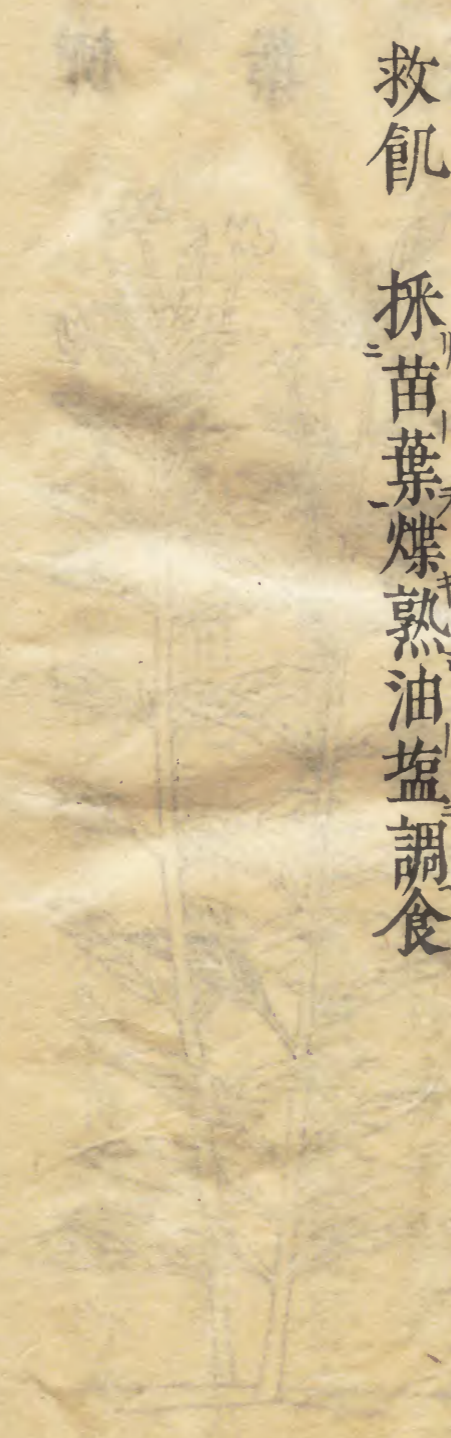 救飢　採苗葉煠熟油塩調食